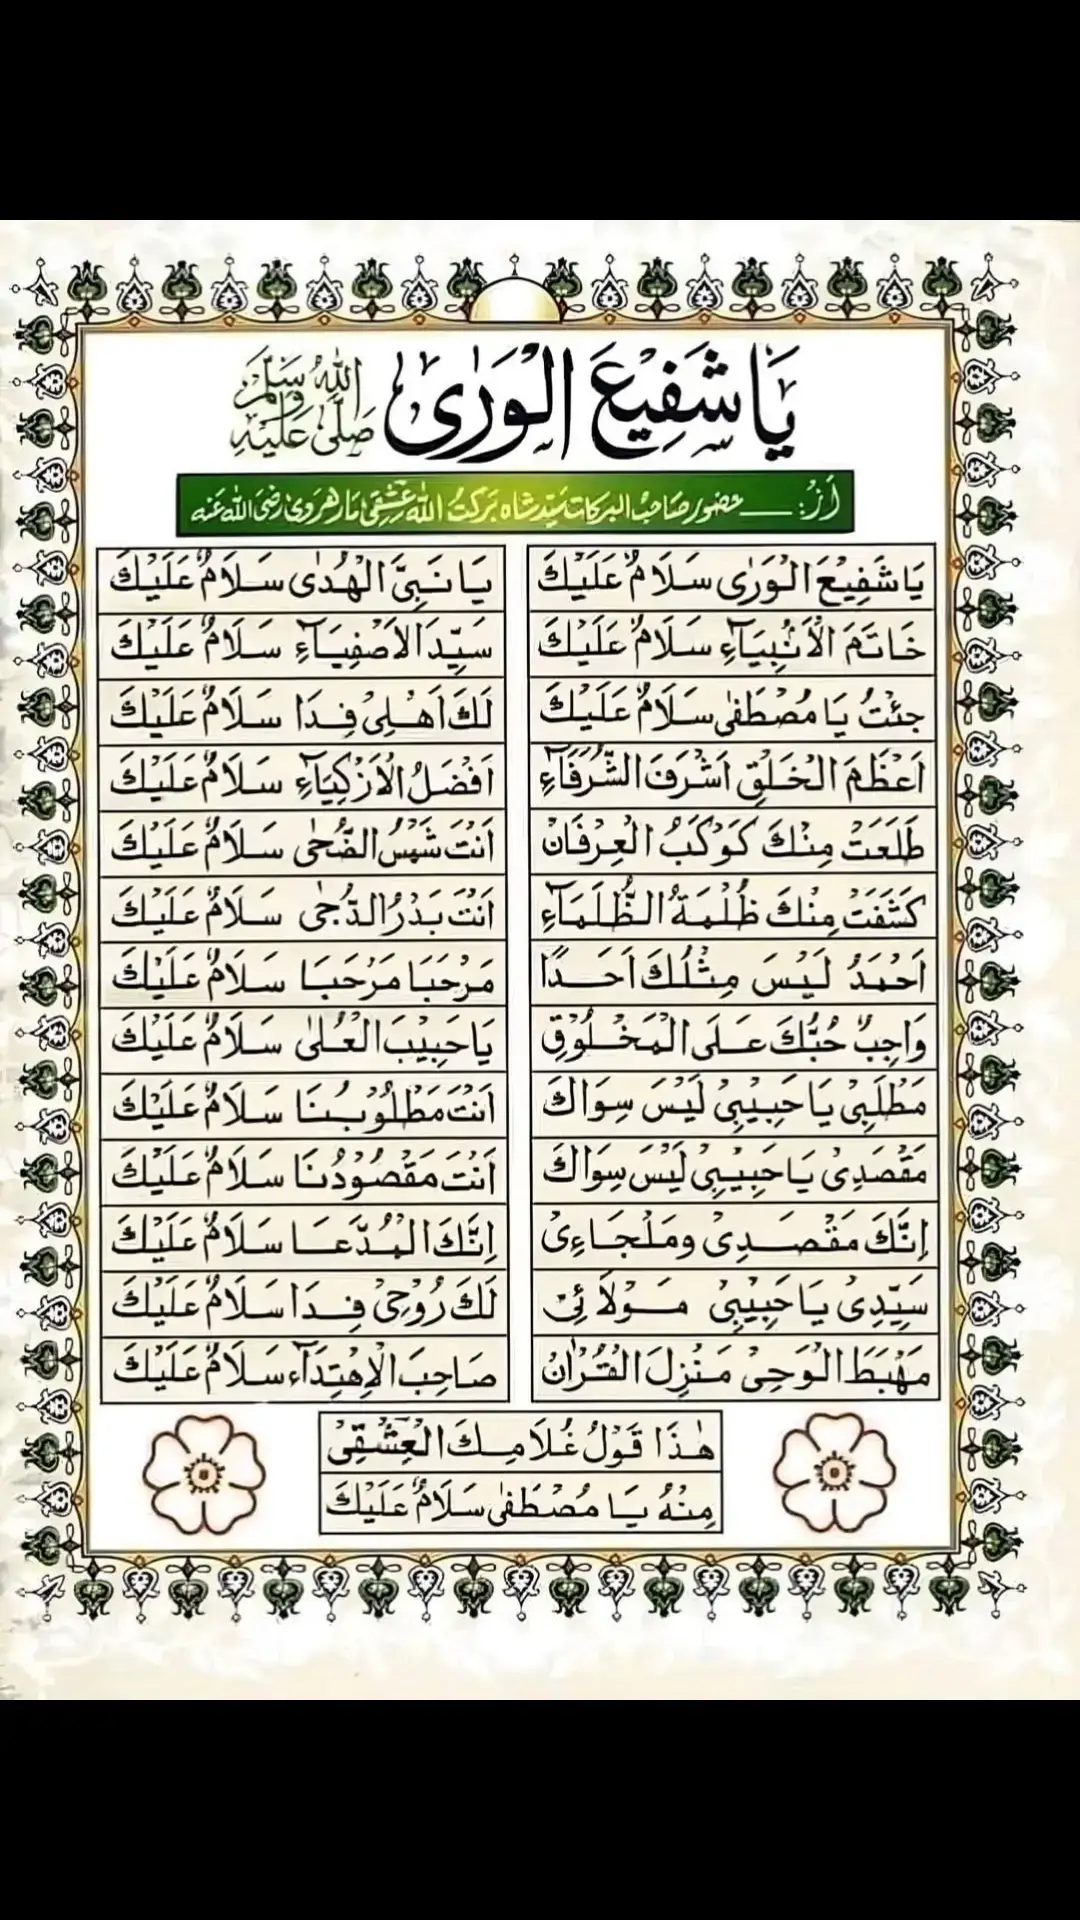 يَا شَفِيْعَ الْوَرٰى صَلَّى اللهُ عَلَيْهِ وَسَلَّمَ
اَزْ: حضور صاحب البرکات سَیّد شاہ بَرکتُ اللہ عِشقِی مَارهروی رَضِیَ اللہ عَنه
يَا شَفِيْعَ الْوَرٰى سَلَامٌ عَلَيْكَ يَا نَبِىَّ الْهُدٰى سَلَامٌ عَلَيْكَ
خَاتَمَ الْاَنْبِيَآءِ سَلَامٌ عَلَيْكَ سَيِّدَ الْاَصْفِيَآءِ سَلَامٌ عَلَيْكَ
جِئْتُ يَا مُصْطَفٰى سَلَامٌ عَلَيْكَ لَكَ اَهْلِىْ فِدَا سَلَامٌ عَلَيْكَ
اَعْظَمَ الْخَلْقِ اَشْرَفَ الشُّرَفَآءِ اَفْضَلُ الْاَزْكِيَآءِ سَلَامٌ عَلَيْكَ
طَلَعَتْ مِنْكَ كَوْكَبُ الْعِرْفَانْ اَنْتَ شَمْسُ الضُّحٰى سَلَامٌ عَلَيْكَ
كَشَفَتْ مِنْكَ ظُلْمَةُ الظُّلَمَآءِ اَنْتَ بَدْرُ الدُّجٰى سَلَامٌ عَلَيْكَ
اَحْمَدُ لَيْسَ مِثْلُكَ اَحَدًا مَرْحَبَا مَرْحَبَا سَلَامٌ عَلَيْكَ
وَاجِبٌ حُبُّكَ عَلَى الْمَخْلُوْقِ يَا حَبِيْبَ الْعُلٰى سَلَامٌ عَلَيْكَ
مَطْلَبِىْ يَا حَبِيْبِىْ لَيْسَ سِوَاكَ اَنْتَ مَطْلُوْبُنَا سَلَامٌ عَلَيْكَ
مَقْصَدِىْ يَا حَبِيْبِىْ لَيْسَ سِوَاكَ اَنْتَ مَقْصُوْدُنَا سَلَامٌ عَلَيْكَ
اِنَّكَ مَقْصَدِىْ وَمَلْجَاءِىْ اِنَّكَ الْمُدَّعَا سَلَامٌ عَلَيْكَ
سَيِّدِىْ يَا حَبِيْبِىْ مَوْلَائِىْ لَكَ رُوْحِىْ فِدَا سَلَامٌ عَلَيْكَ
مَهْبَطَ الْوَحِىْ مَنْزِلَ الْقُرْاٰنْ صَاحِبَ الْاِهْتِدَآء سَلَامٌ عَلَيْكَ
هٰذَا قَوْلُ غُلَامِكَ الْعِشْقِىْ
مِنْهُ يَا مُصْطَفٰى سَلَامٌ عَلَيْكَ